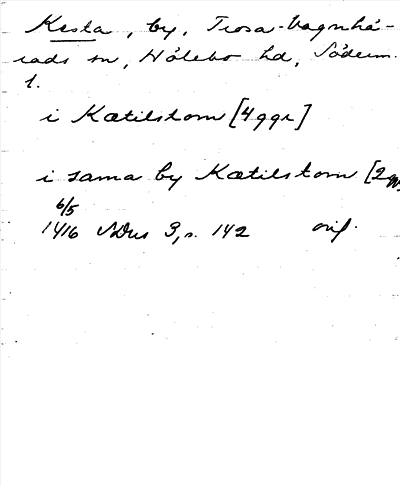 Kesta, by, Trosa-Vagnhä-
rads sn, Hölebo hd, Söderm.
l.
i Kætilstom [4 ggr]
i sama by Kætilstom [2 ggr
6/5
1416 SDns 3, s. 142 orig.